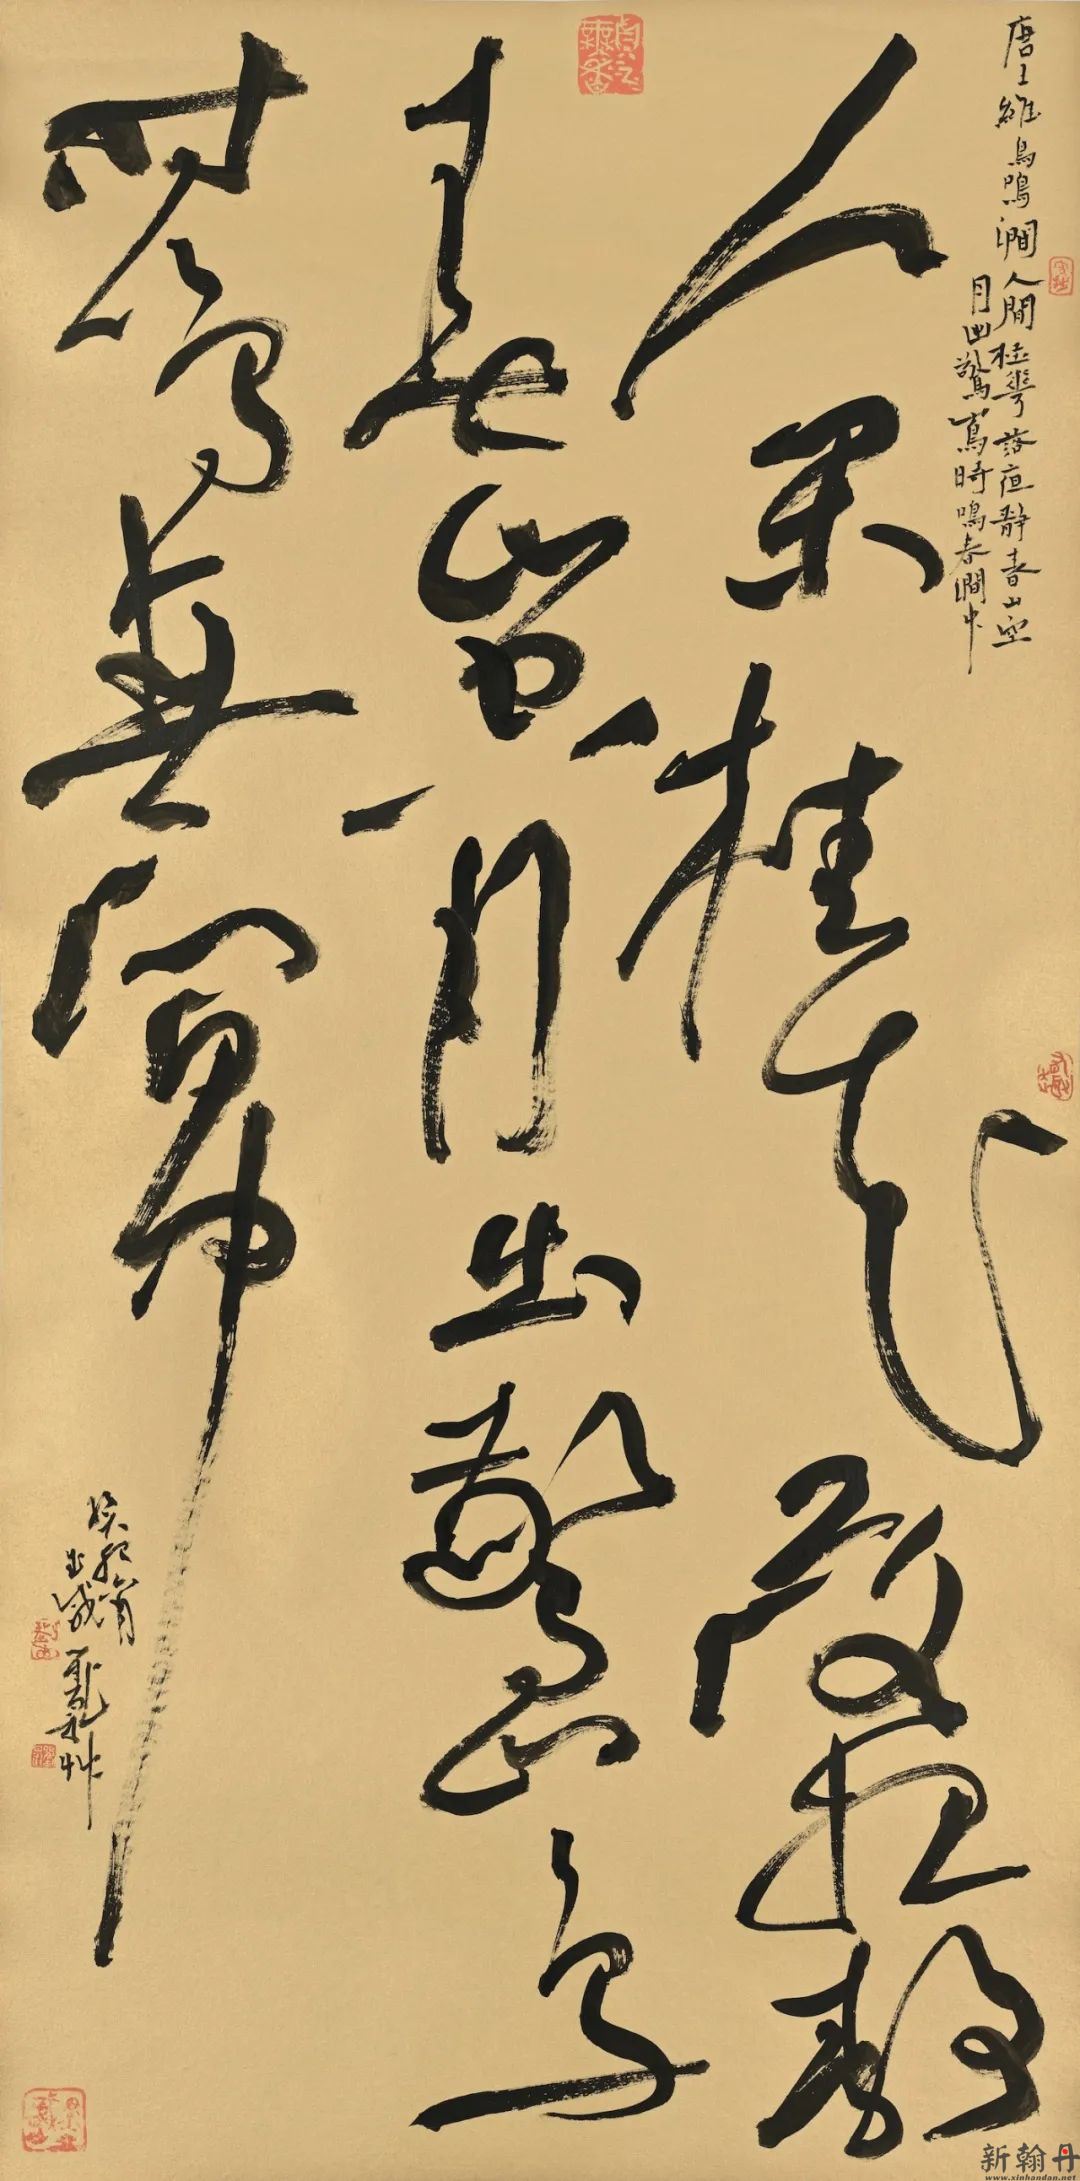 唐王維鳥鳴澗人間桂華落夜靜春山空
月出驚鳥時鳴春澗中
人閑桂花落夜靜
春山空月出驚山鳥
時鳴春澗中
癸卯
草
新翰丹
www.xinhandan.net